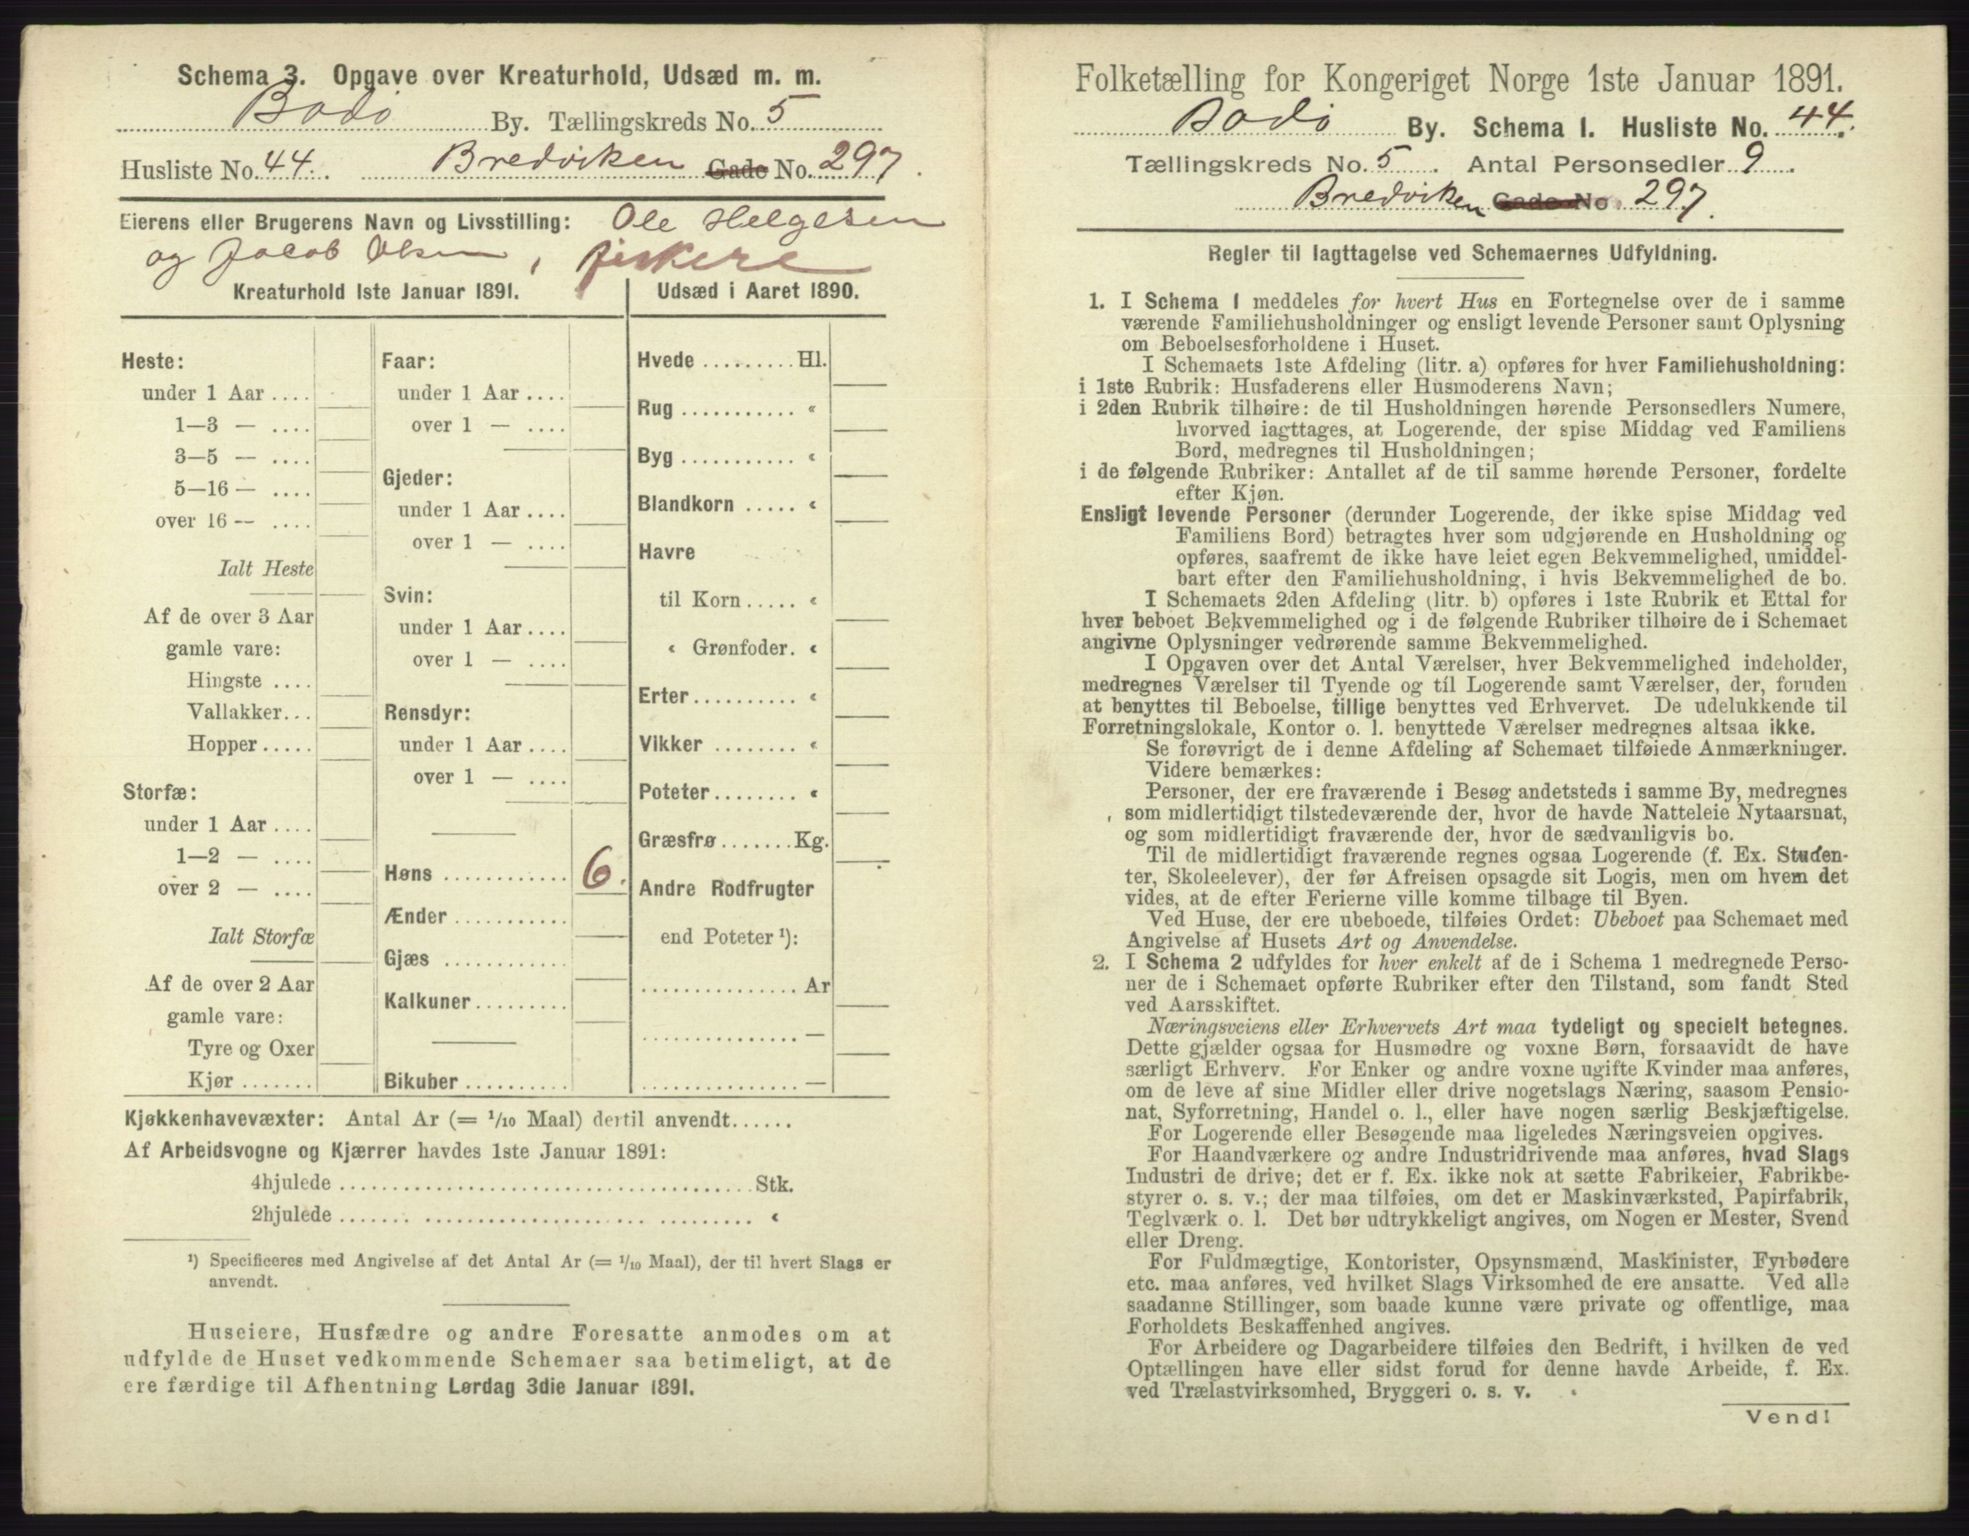 Schema 3. Opgave over Kreaturhold, Udsæd m. m.
Bodø By. Tællingskreds No. 5
Husliste No. 44. Bredviken Gade No. 297.
Eierens eller Brugerens Navn og Livsstilling: Ole Helgesen
og Jacob Olsen, fiskere
Kreaturhold 1ste Januar 1891.
Heste:
under 1 Aar ....
1—3 — ....
3—5 — ....
5—16 — ....
over 16 — ....
Ialt Heste
Af de over 3 Aar
gamle vare:
Hingste ....
Vallakker...
Hopper.....
Storfæ:
under 1 Aar ....
1—2 — ....
over 2 — ....
Ialt Storfæ
Af de over 2 Aar
gamle vare:
Tyre og Oxer
Kjør .......
Faar:
under 1 Aar ....
over 1 — ....
Gjeder:
under 1 Aar ....
over 1 — ....
Svin:
under 1 Aar ....
over 1 — ....
Rensdyr:
under 1 Aar ....
over 1 — ....
Høns ............ 6.
Ænder ...........
Gjæs ............
Kalkuner.........
Bikuber ..........
Udsæd i Aaret 1890.
Hvede ......... Hl.
Rug ........... "
Byg ........... "
Blandkorn ..... "
Havre
til Korn ..... "
" Grønfoder. "
Erter .......... "
Vikker ........ "
Poteter........ "
Græsfrø ....... Kg.
Andre Rodfrugter
end Poteter ¹):
............... Ar
............... —
............... —
Kjøkkenhavevæxter: Antal Ar (= 1/10 Maal) dertil anvendt......
Af Arbeidsvogne og Kjærrer havdes 1ste Januar 1891:
4hjulede ........................................ Stk.
2hjulede ........................................ "
¹) Specificeres med Angivelse af det Antal Ar (= 1/10 Maal), der til hvert Slags er
anvendt.
Huseiere, Husfædre og andre Foresatte anmodes om at
udfylde de Huset vedkommende Schemaer saa betimeligt, at de
ere færdige til Afhentning Lørdag 3die Januar 1891.
Folketælling for Kongeriget Norge 1ste Januar 1891.
Bodø By. Schema 1. Husliste No. 44.
Tællingskreds No. 5. Antal Personsedler 9.
Bredviken Gade No. 297.
Regler til Iagttagelse ved Schemaernes Udfyldning.
1. I Schema 1 meddeles for hvert Hus en Fortegnelse over de i samme
værende Familiehusholdninger og ensligt levende Personer samt Oplysning
om Beboelsesforholdene i Huset.
I Schemaets 1ste Afdeling (litr. a) opføres for hver Familiehusholdning:
i 1ste Rubrik: Husfaderens eller Husmoderens Navn;
i 2den Rubrik tilhøire: de til Husholdningen hørende Personsedlers Numere,
hvorved iagttages, at Logerende, der spise Middag ved Familiens
Bord, medregnes til Husholdningen;
i de følgende Rubriker: Antallet af de til samme hørende Personer, fordelte
efter Kjøn.
Ensligt levende Personer (derunder Logerende, der ikke spise Middag ved
Familiens Bord) betragtes hver som udgjørende en Husholdning og
opføres, saafremt de ikke have leiet egen Bekvemmelighed, umiddel-
bart efter den Familiehusholdning, i hvis Bekvemmelighed de bo.
I Schemaets 2den Afdeling (litr. b) opføres i 1ste Rubrik et Ettal for
hver beboet Bekvemmelighed og i de følgende Rubriker tilhøire de i Schemaet
angivne Oplysninger vedrørende samme Bekvemmelighed.
I Opgaven over det Antal Værelser, hver Bekvemmelighed indeholder,
medregnes Værelser til Tyende og til Logerende samt Værelser, der, foruden
at benyttes til Beboelse, tillige benyttes ved Erhvervet. De udelukkende til
Forretningslokale, Kontor o. l. benyttede Værelser medregnes altsaa ikke.
Se forøvrigt de i denne Afdeling af Schemaet tilføiede Anmærkninger.
Videre bemærkes:
Personer, der ere fraværende i Besøg andetsteds i samme By, medregnes
som midlertidigt tilstedeværende der, hvor de havde Natteleie Nytaarsnat,
og som midlertidigt fraværende der, hvor de sædvanligvis bo.
Til de midlertidigt fraværende regnes ogsaa Logerende (f. Ex. Studen-
ter, Skoleelever), der før Afreisen opsagde sit Logis, men om hvem det
vides, at de efter Ferierne ville komme tilbage til Byen.
Ved Huse, der ere ubeboede, tilføies Ordet: Ubeboet paa Schemaet med
Angivelse af Husets Art og Anvendelse.
2. I Schema 2 udfyldes for hver enkelt af de i Schema 1 medregnede Perso-
ner de i Schemaet opførte Rubriker efter den Tilstand, som fandt Sted
ved Aarsskiftet.
Næringsveiens eller Erhvervets Art maa tydeligt og specielt betegnes.
Dette gjælder ogsaa for Husmødre og voxne Børn, forsaavidt de have
særligt Erhverv. For Enker og andre voxne ugifte Kvinder maa anføres,
om de leve af sine Midler eller drive nogetslags Næring, saasom Pensio-
nat, Syforretning, Handel o. l., eller have nogen særlig Beskjæftigelse.
For Logerende eller Besøgende maa ligeledes Næringsveien opgives.
For Haandværkere og andre Industridrivende maa anføres, hvad Slags
Industri de drive; det er f. Ex. ikke nok at sætte Fabrikeier, Fabrikbe-
styrer o. s. v.; der maa tilføies, om det er Maskinværksted, Papirfabrik,
Teglværk o. l. Det bør udtrykkeligt angives, om Nogen er Mester, Svend
eller Dreng.
For Fuldmægtige, Kontorister, Opsynsmænd, Maskinister, Fyrbødere
etc. maa anføres, ved hvilket Slags Virksomhed de ere ansatte. Ved alle
saadanne Stillinger, som baade kunne være private og offentlige, maa
Forholdets Beskaffenhed angives.
For Arbeidere og Dagarbeidere tilføies den Bedrift, i hvilken de ved
Optællingen have eller sidst forud for denne havde Arbeide, f. Ex.
ved Trælastvirksomhed, Bryggeri o. s. v.
Vend!